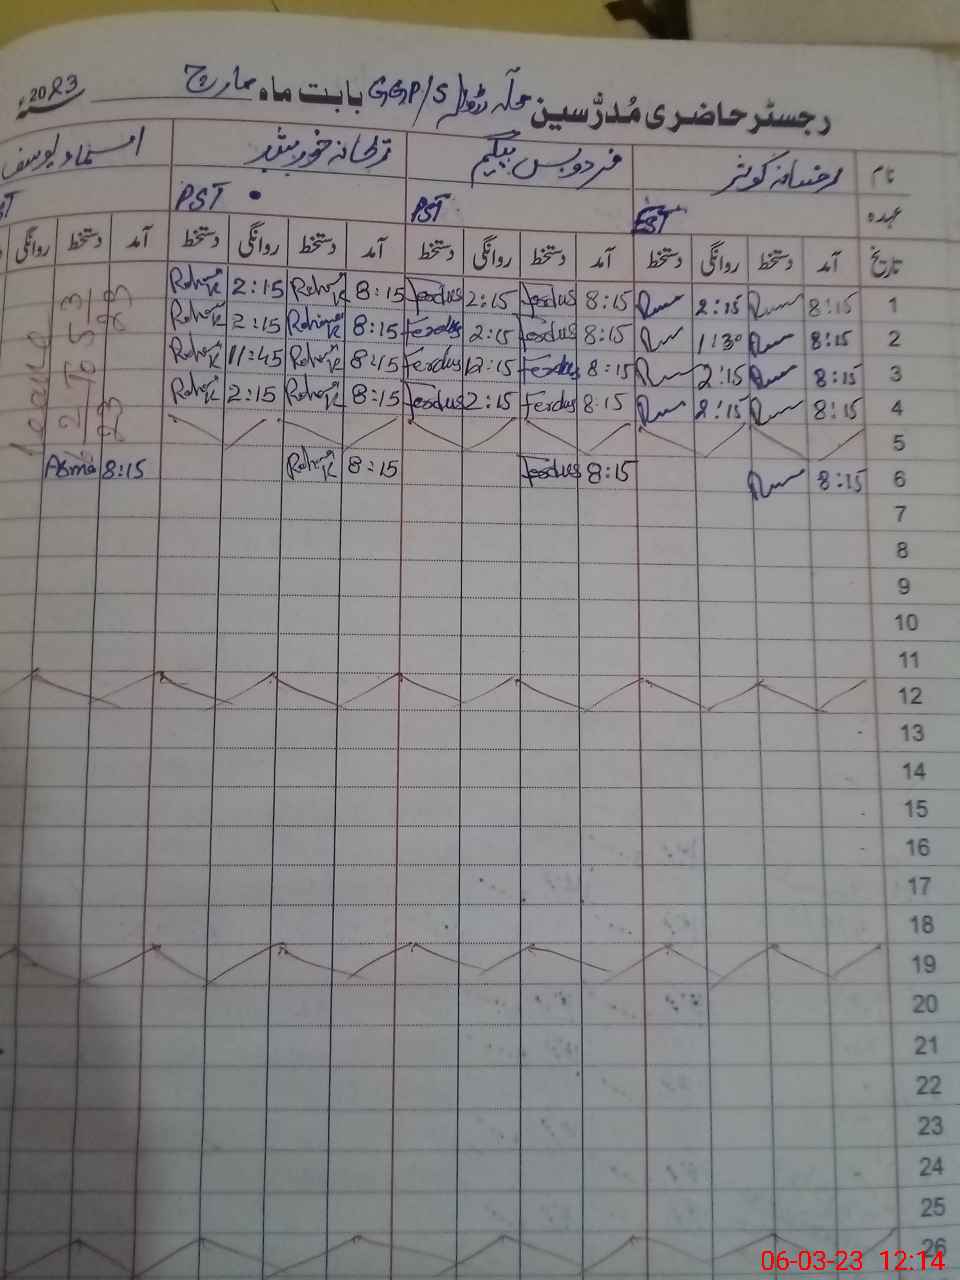 رجسٹر حاضری مُدرّسین محلہ GGP/S بابت ماہ مارچ 2023ء
نام رخسانہ کوثر فردوس بیگم خورشید اسماء یوسف
عہدہ PST PST
تاریخ آمد دستخط روانگی دستخط آمد دستخط روانگی دستخط آمد دستخط روانگی دستخط آمد دستخط روانگی
1 8:15 2:15 8:15 Ferdus 2:15 Ferdus 8:15 2:15
2 8:15 1:30 8:15 Ferdus 2:15 Ferdus 8:15 2:15
3 8:15 2:15 8:15 Ferdus 12:15 Ferdus 8:15 11:45
4 8:15 2:15 8:15 Ferdus 2:15 Ferdus 8:15 2:15
Leave
5
6 8:15 8:15 Ferdus 8:15 8:15 Asma
7
8
9
10
11
12
13
14
15
16
17
18
19
20
21
22
23
24
25
26
06-03-23 12:14